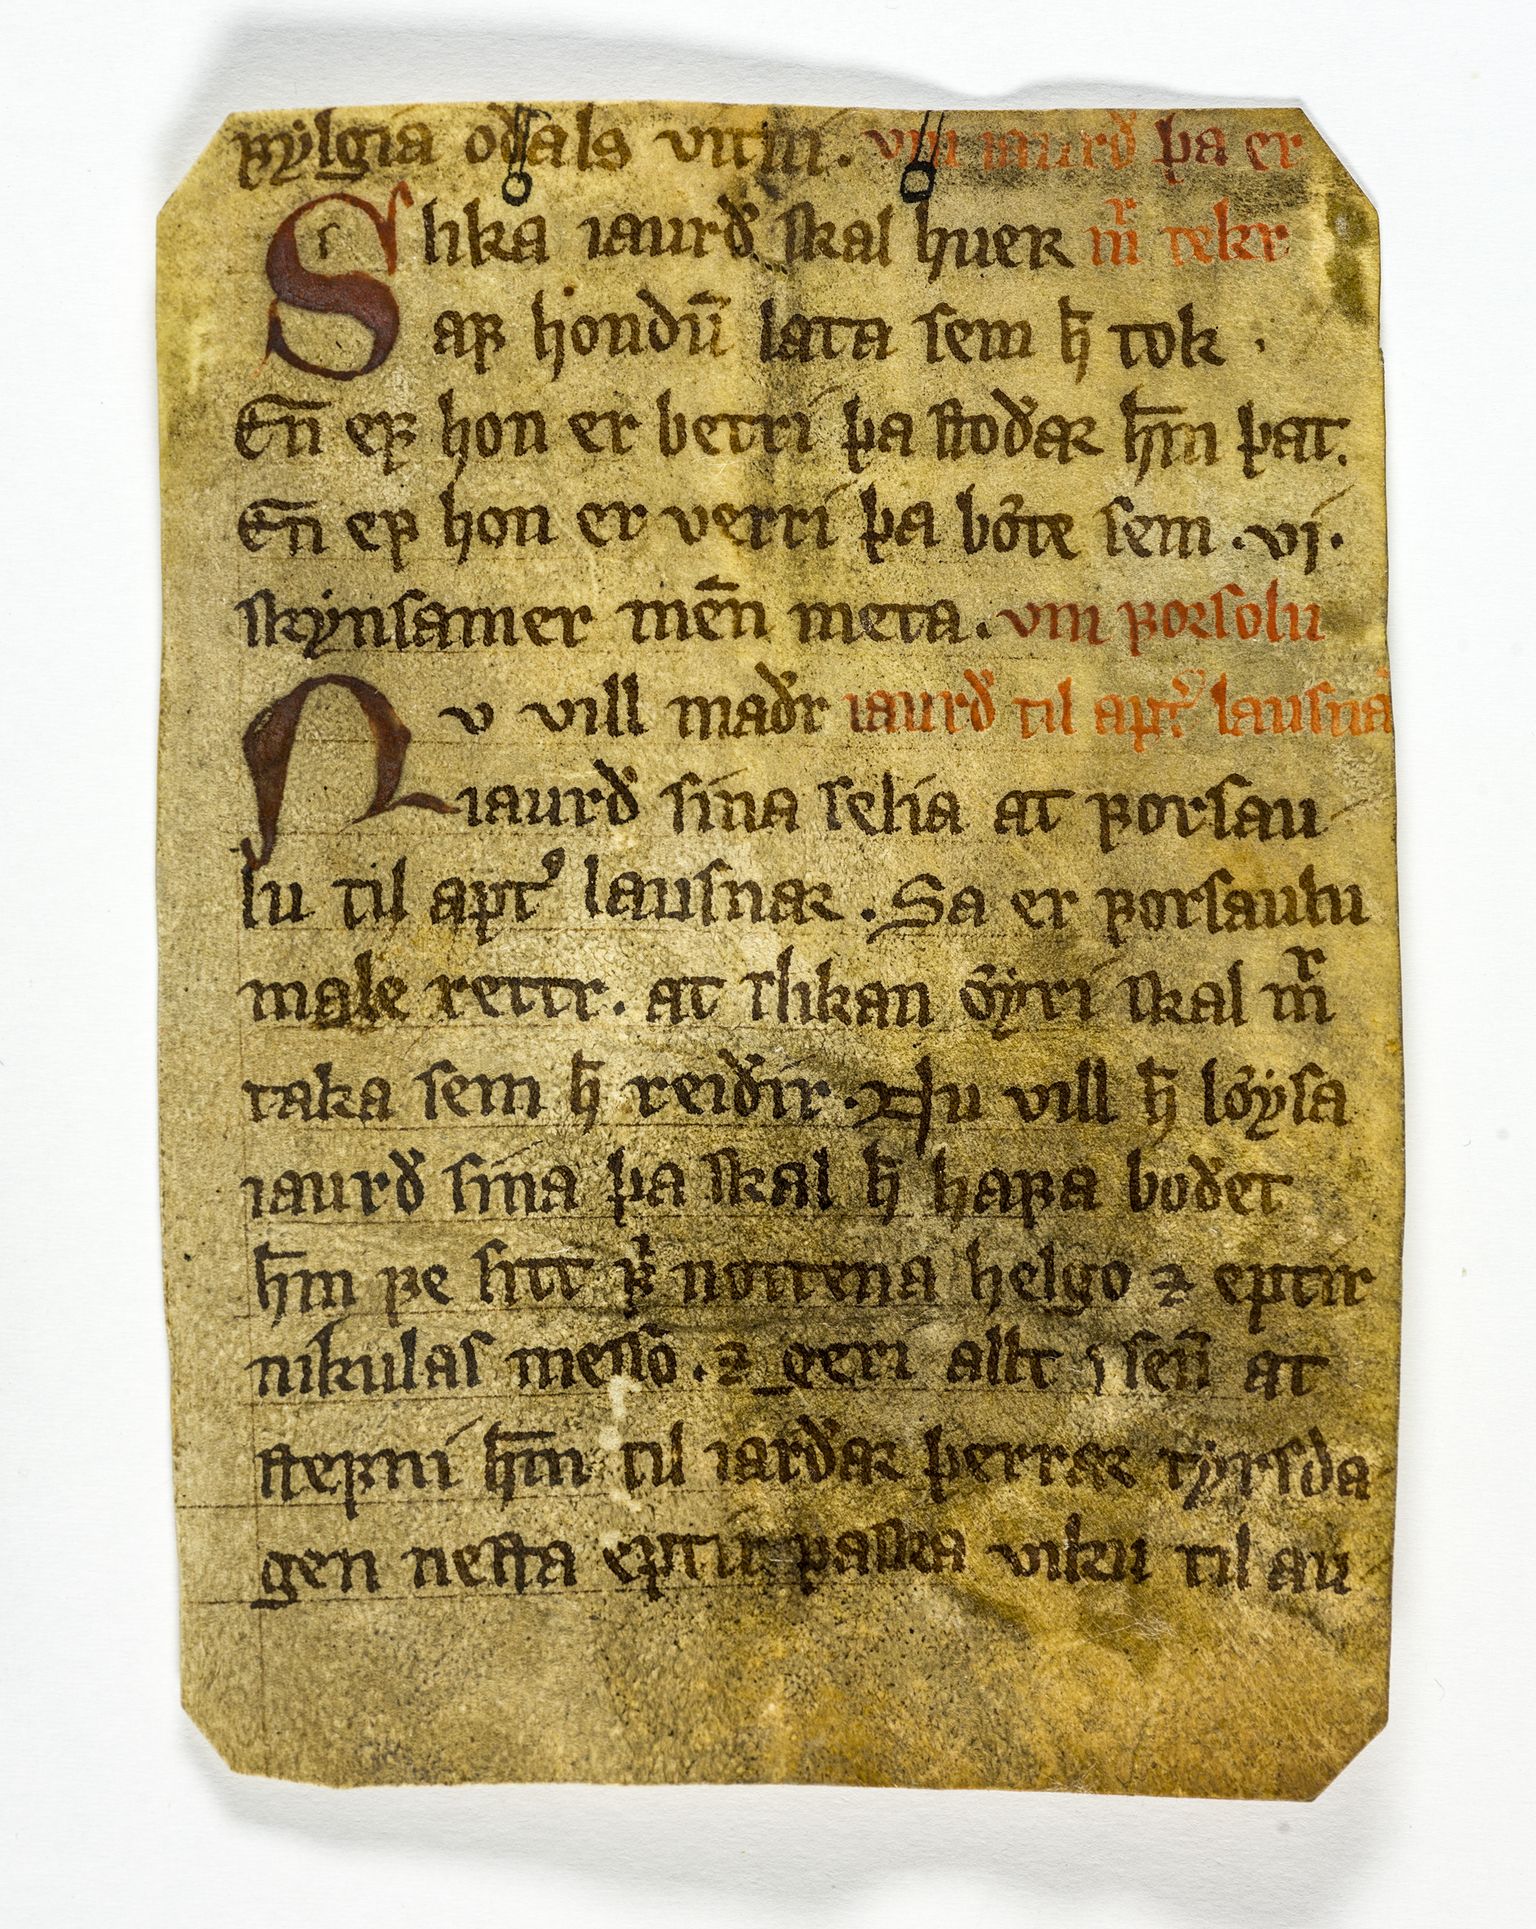 fylgia oðals vitni. vm iaurð þa er
Slika iaurð skal huer mͬ tekr
af hondū lata sem h̄ tok .
En̄ ef hon er betri þa stoðar hm̄ þat.
En̄ ef hon er verri þa bǿte sem .vi.
skynsamer men̄ meta. vm forsolu
Nv vill maðr iaurð til aptʼ lausnar
iaurð sina selia at forsau
lu til aptʼ lausnar. Sa er forsaulu
male rettr. at slikan ꜹyri skal mͬ
taka sem h̄ reiðir. Nu vill h̄ lꜹysa
iaurð sina þa skal h̄ hafa boðet
hm̄ fe sitt fͥ nottena helgo ⁊ eptir
nikulas messo. ⁊ geri allt ı sen̄ at
stefni hm̄ til iarðar þerrar tyrsda
gen nesta eptir paska viku til au